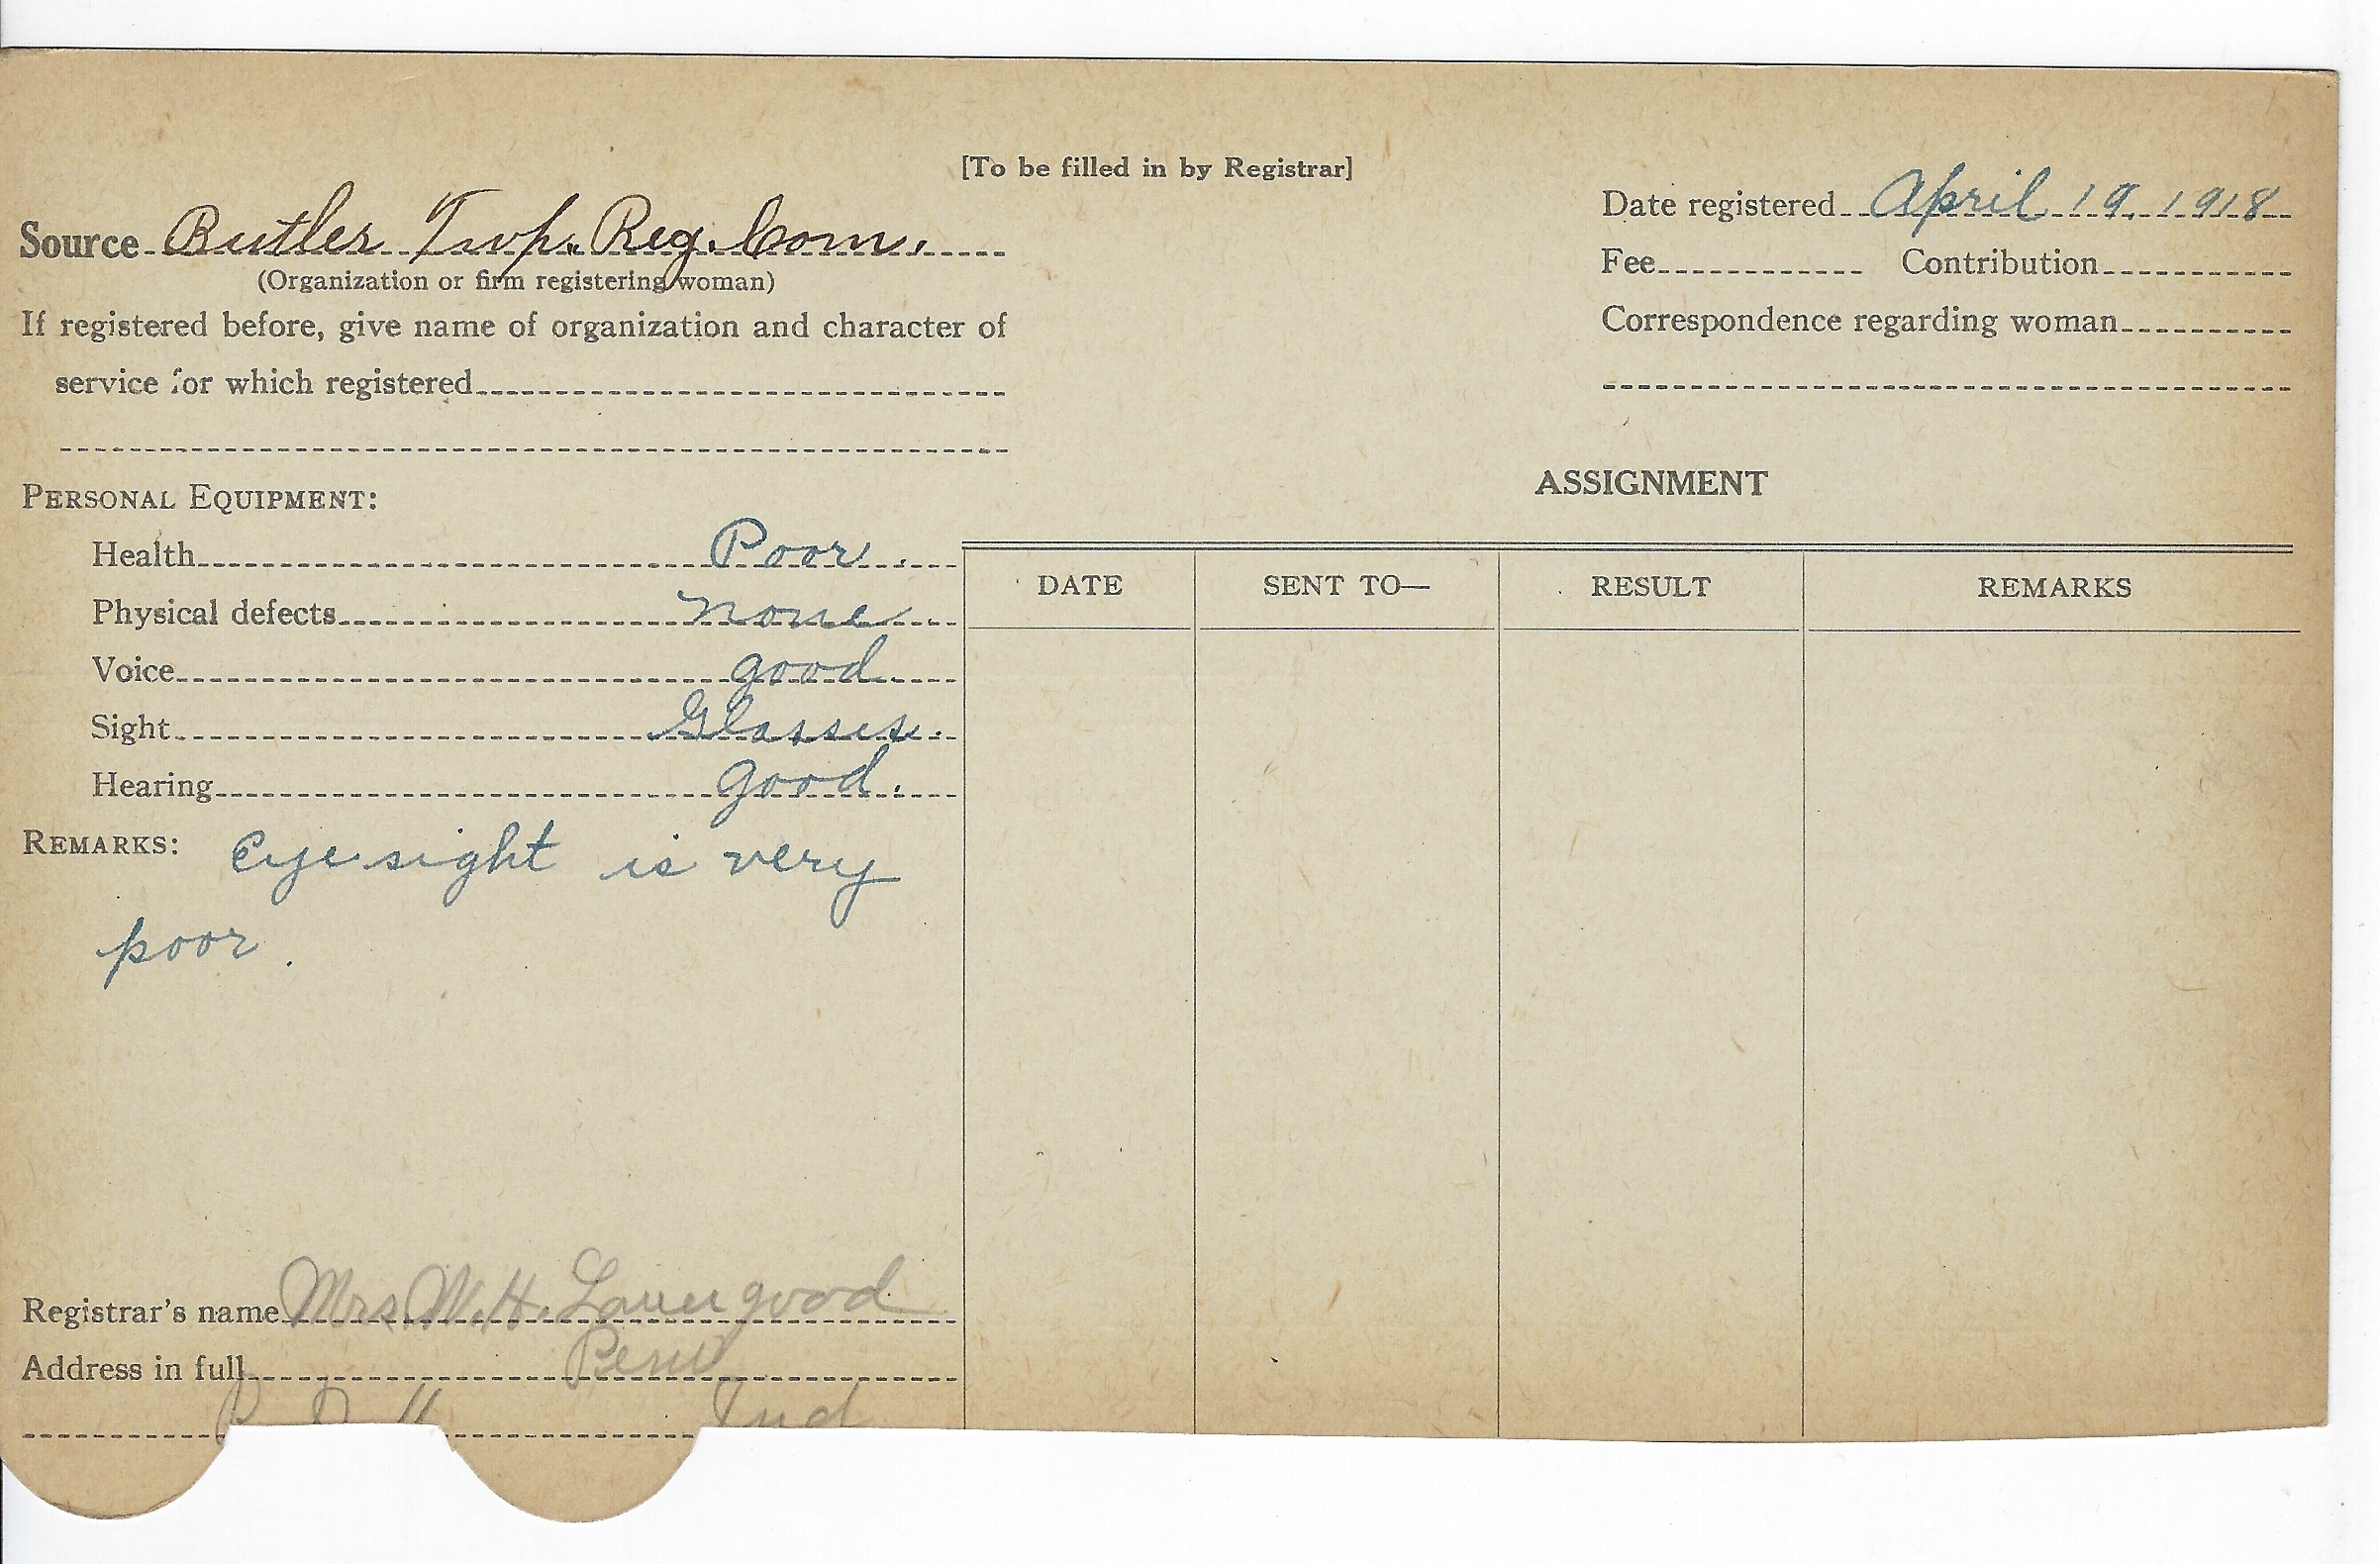 [To be filled in by Registrar]
Source Butler Twp. Reg. Com.
(Organization or firm registering woman)
If registered before, give name of organization and character of
service for which registered
Date registered April 19, 1918
Fee Contribution
Correspondence regarding woman
PERSONAL EQUIPMENT:
Health Poor.
Physical defects none
Voice good
Sight Glasses.
Hearing good.
REMARKS: Eye sight is very
poor.
Registrar's name Mrs. M. H. Lavengood
Address in full Peru
Ind
ASSIGNMENT
DATE SENT TO— RESULT REMARKS